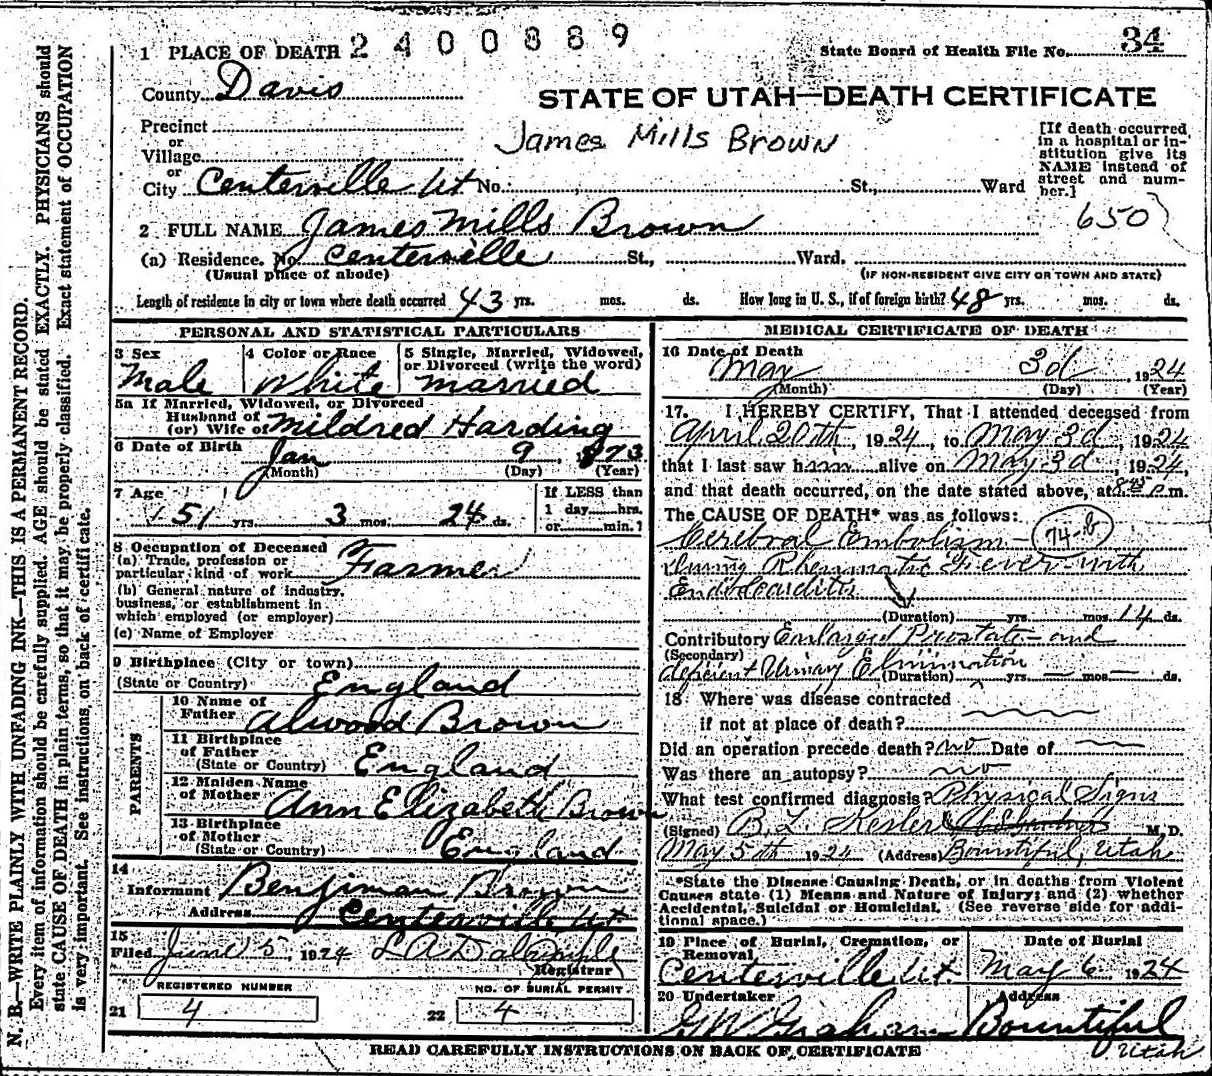 N. B.—WRITE PLAINLY WITH UNFADING INK—THIS IS A PERMANENT RECORD.
Every item of information should be carefully supplied. AGE should be stated EXACTLY. PHYSICIANS should
state CAUSE OF DEATH in plain terms, so that it may be properly classified. Exact statement of OCCUPATION
is very important. See instructions on back of certificate.
1 PLACE OF DEATH 2400889
State Board of Health File No. 34
County Davis
STATE OF UTAH—DEATH CERTIFICATE
Precinct
or
Village
James Mills Brown
[If death occurred
in a hospital or in-
stitution give its
NAME instead of
street and num-
ber.]
or
City Centerville Ut No. , St., Ward
650
2 FULL NAME James Mills Brown
(a) Residence. No. Centerville St., Ward.
(Usual place of abode) (IF NON-RESIDENT GIVE CITY OR TOWN AND STATE)
Length of residence in city or town where death occurred 43 yrs. mos. ds. How long in U. S., if of foreign birth? 48 yrs. mos. ds.
PERSONAL AND STATISTICAL PARTICULARS
3 Sex
Male
4 Color or Race
White
5 Single, Married, Widowed,
or Divorced (write the word)
married
5a If Married, Widowed, or Divorced
Husband of
(or) Wife of Mildred Harding
6 Date of Birth
Jan 9 , 1873
(Month) (Day) (Year)
7 Age
51 yrs. 3 mos. 24 ds.
If LESS than
1 day hrs.
or min.
8 Occupation of Deceased
(a) Trade, profession or
particular kind of work Farmer
(b) General nature of industry,
business, or establishment in
which employed (or employer)
(c) Name of Employer
9 Birthplace (City or town)
(State or Country) England
PARENTS
10 Name of
Father Alwood Brown
11 Birthplace
of Father
(State or Country) England
12 Maiden Name
of Mother Ann Elizabeth Brown
13 Birthplace
of Mother
(State or Country) England
14
Informant Benjiman Brown
Address Centerville Ut
15
Filed June 5, 1924 L A Dalrymple
Registrar
REGISTERED NUMBER
21 4
NO. OF BURIAL PERMIT
22 4
MEDICAL CERTIFICATE OF DEATH
16 Date of Death
May 3d , 1924
(Month) (Day) (Year)
17. I HEREBY CERTIFY, That I attended deceased from
April 20th, 1924, to May 3d, 1924
that I last saw him alive on May 3d, 1924,
and that death occurred, on the date stated above, at 8:45 P.m.
The CAUSE OF DEATH* was as follows:
Cerebral Embolism— 74-b
during Rhenmatic Fever with
Endocarditis
(Duration) yrs. mos. 14 ds.
Contributory Enlarged Prostate—and
(Secondary)
deficient Urinary Elimination
(Duration) yrs. — mos. — ds.
18 Where was disease contracted
if not at place of death?
Did an operation precede death? no Date of
Was there an autopsy? no
What test confirmed diagnosis? Physical Signs
(Signed) B. L. Kesler M. D.
May 5th 1924 (Address) Bountiful, Utah
*State the Disease Causing Death, or in deaths from Violent
Causes state (1) Means and Nature of Injury; and (2) whether
Accidental, Suicidal or Homicidal. (See reverse side for addi-
tional space.)
19 Place of Burial, Cremation, or
Removal
Centerville Ut.
Date of Burial
May 6 1924
20 Undertaker
G W Graham
Address
Bountiful
Utah
READ CAREFULLY INSTRUCTIONS ON BACK OF CERTIFICATE